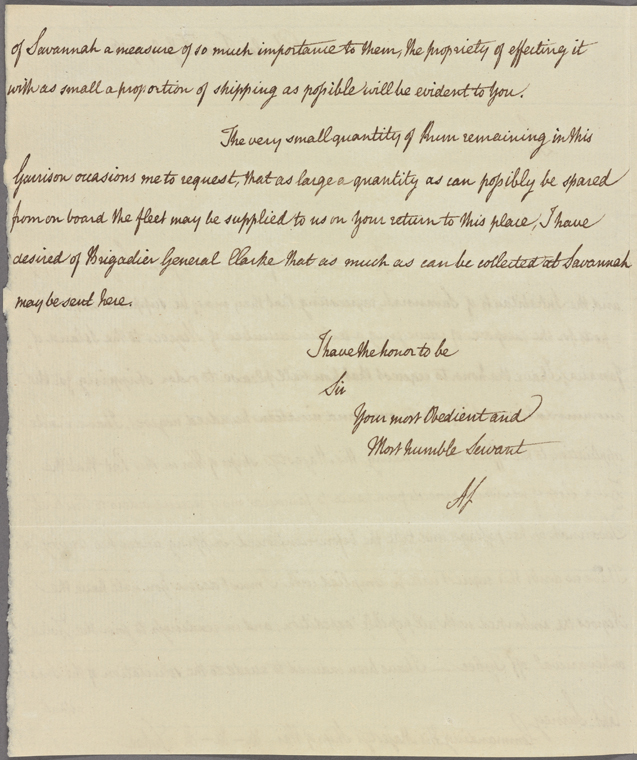 of Savannah a measure of so much importance to them, the propriety of effecting it
with as small a proportion of shipping as possible will be evident to you.
The very small quantity of Rum remaining in this
Garrison occasions me to request, that as large a quantity as can possibly be spared
from on board the fleet may be supplied to us on your return to this place, I have
desired of Brigadier General Clarke that as much as can be collected at Savannah
may be sent here.
I have the honor to be
Sir
Your most Obedient and
Most humble Servant